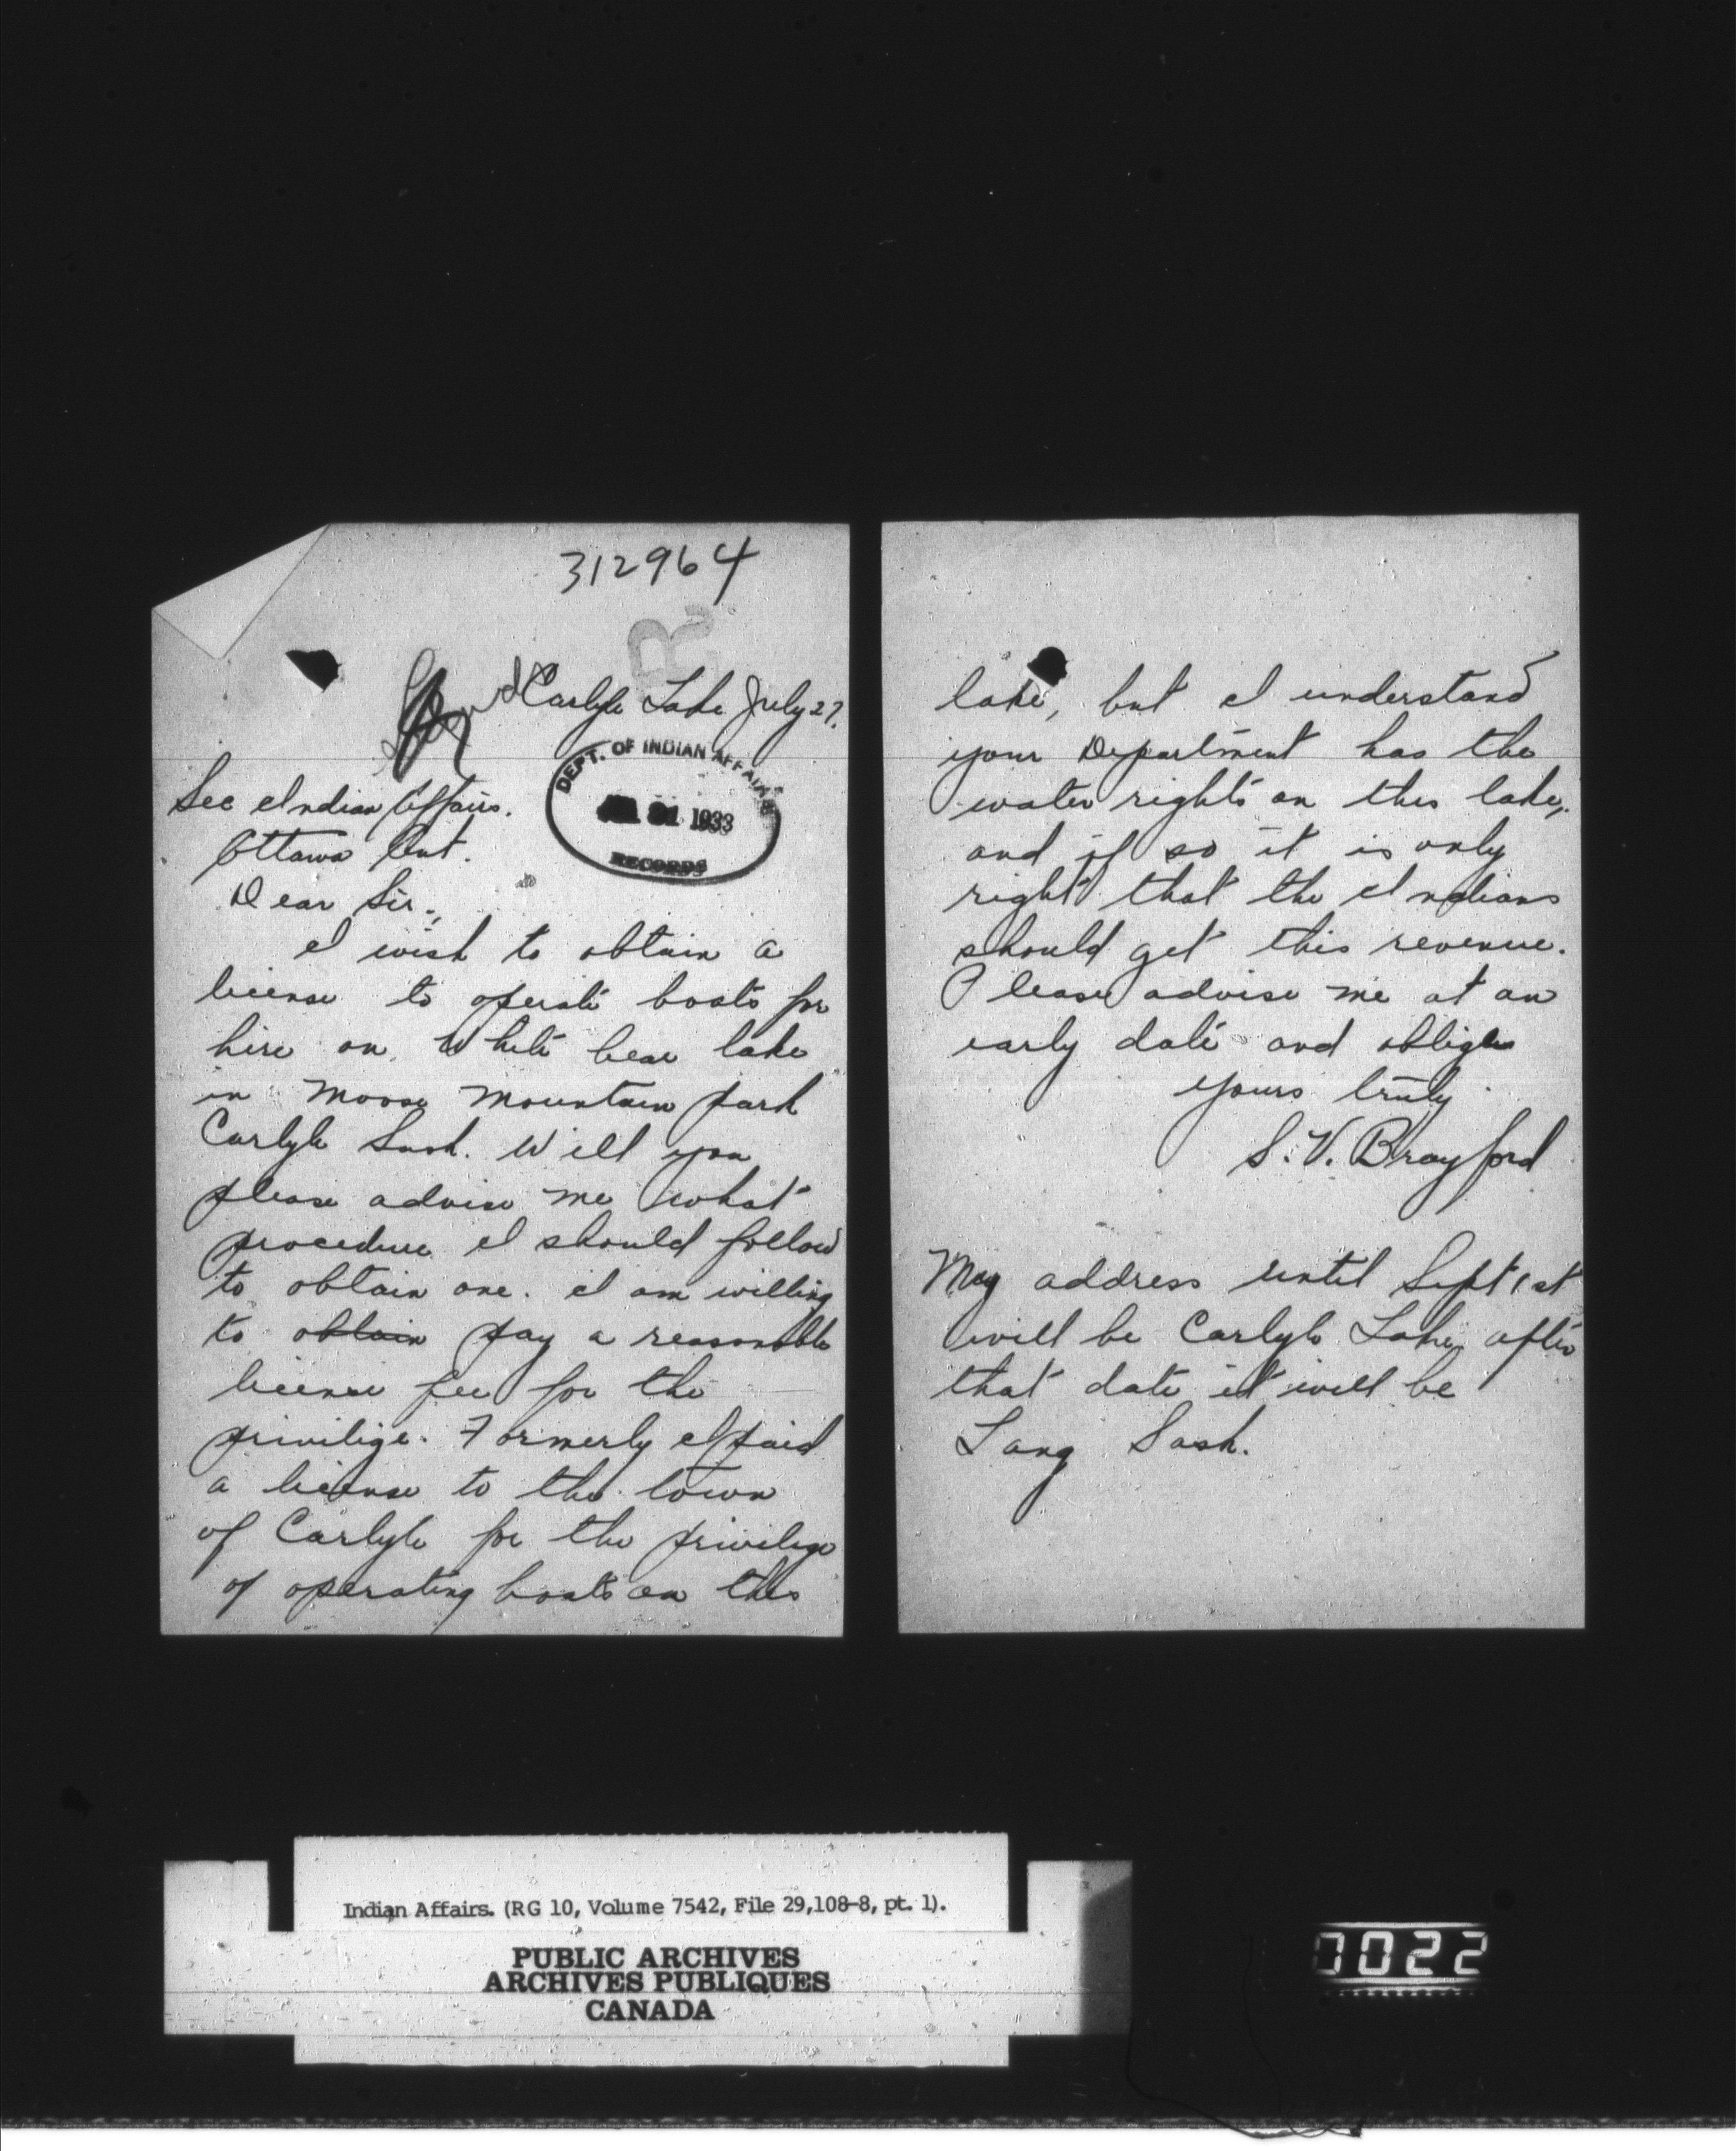 312964
R
Carlyle Lake July 27.
DEPT. OF INDIAN AFFAIRS
1933
RECORDS
Sec Indian Affairs.
Ottawa Ont.
Dear Sir.,
I wish to obtain a
license to operate boats for
hire on White bear lake
in Moose Mountain park
Carlyle Sask. Will you
please advise me what
procedure I should follow
to obtain one. I am willing
to obtain pay a reasonable
license fee for the
privilige. Formerly I paid
a license to the town
of Carlyle for the privilige
of operating boats on this
lake, but I understand
your Department has the
water rights on this lake,
and if so it is only
right that the Indians
should get this revenue.
Please advise me at an
early date and oblige
yours truly
S. V. Brayford
My address until Sept 1st
will be Carlyle Lake, after
that date it will be
Lang Sask.
Indian Affairs. (RG 10, Volume 7542, File 29,108-8, pt. 1).
PUBLIC ARCHIVES
ARCHIVES PUBLIQUES
CANADA
0022